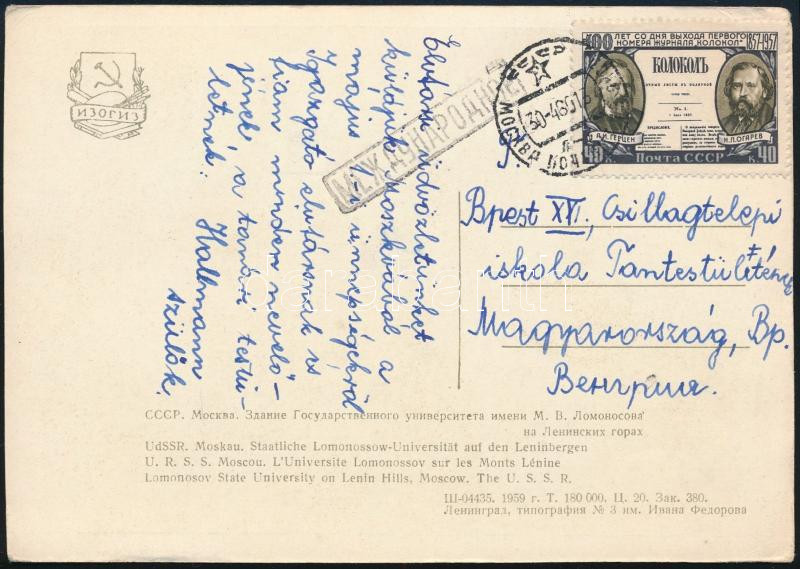 ИЗОГИЗ
Elvtársi üdvözletünket
küldjük Moszkvából a
május 1.-i ünnepségekről
Igazgató elvtársnak és
fiam minden nevelő-
jének a tanári testü-
letnek. Hallmann
szülők.
МЕЖДУНАРОДНОЕ
МОСКВА
100 ЛЕТ СО ДНЯ ВЫХОДА ПЕРВОГО
НОМЕРА ЖУРНАЛА „КОЛОКОЛ" 1857-1957
КОЛОКОЛЪ
А.И. ГЕРЦЕН
Н.П. ОГАРЕВ
40 к. ПОЧТА СССР к. 40
Bpest XVI, Csillagtelepi
iskola Tantestületének
Magyarország, Bp.
Венгрия.
darabanth
СССР. Москва. Здание Государственного университета имени М. В. Ломоносова
на Ленинских горах
UdSSR. Moskau. Staatliche Lomonossow-Universität auf den Leninbergen
U. R. S. S. Moscou. L'Universite Lomonossov sur les Monts Lénine
Lomonosov State University on Lenin Hills, Moscow. The U. S. S. R.
Ш-04435. 1959 г. Т. 180 000. Ц. 20. Зак. 380.
Ленинград, типография № 3 им. Ивана Федорова